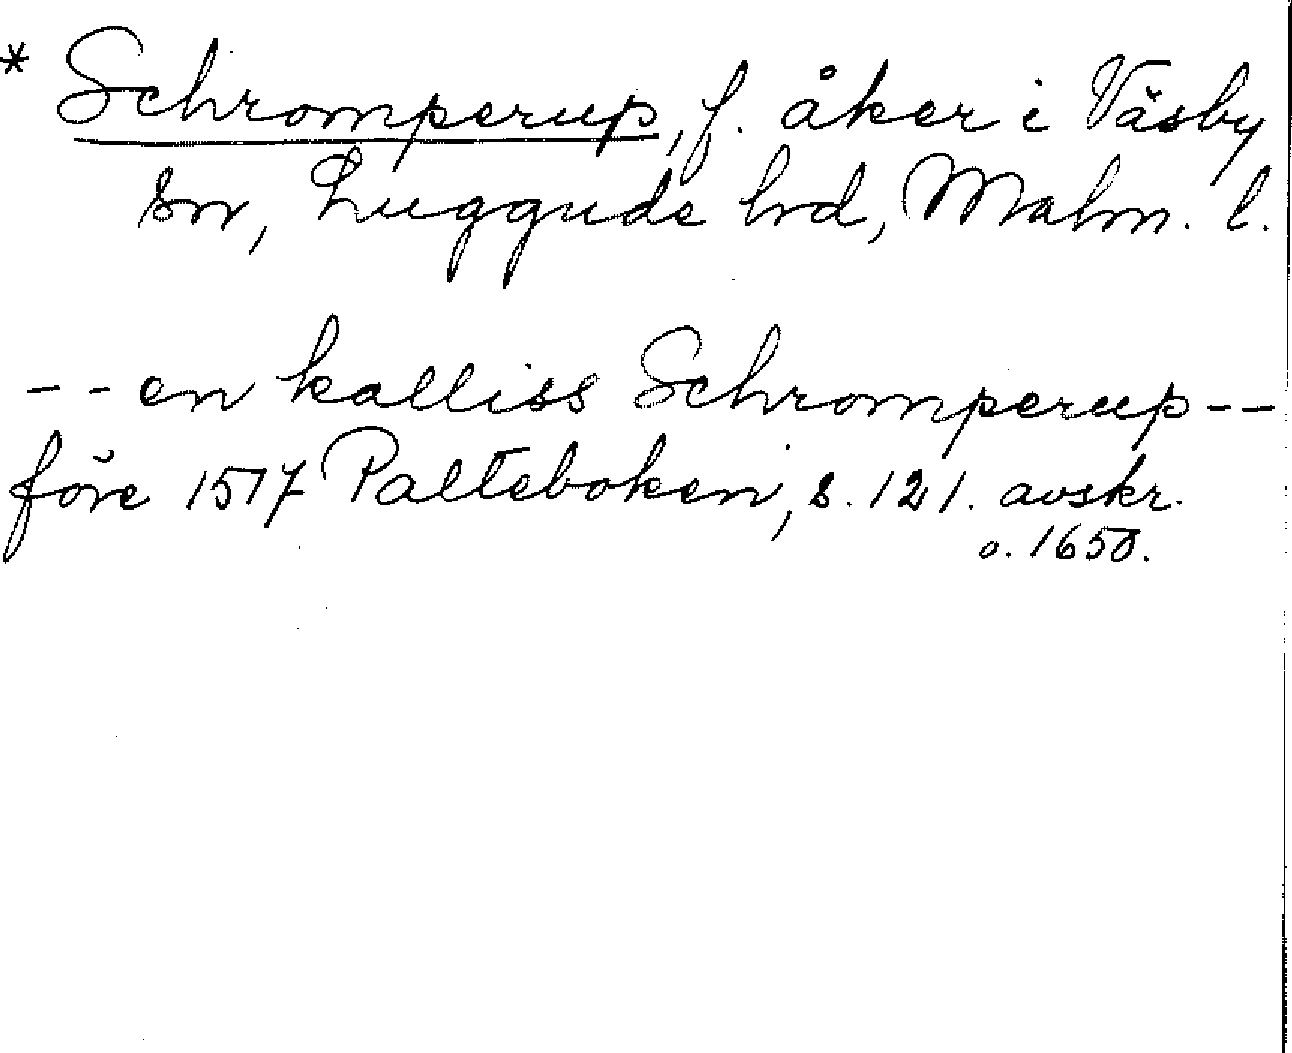 * Schromperup, f. åker i Väsby
sn, Luggude hd, Malm. l.
-- en kalliss Schromperup --
före 1517 Palteboken, s. 121. avskr.
o. 1650.